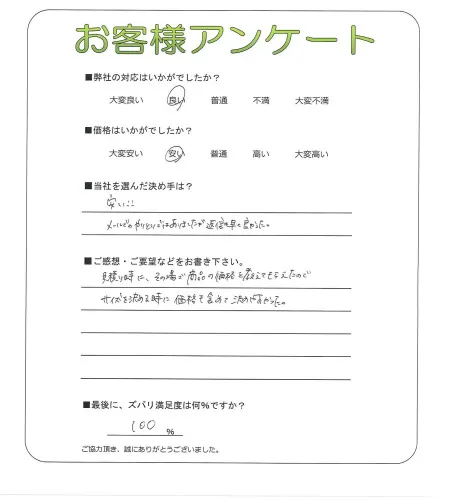 お客様アンケート
■弊社の対応はいかがでしたか？
大変良い 良い 普通 不満 大変不満
■価格はいかがでしたか？
大変安い 安い 普通 高い 大変高い
■当社を選んだ決め手は？
安い!!
メールでのやりとりではありましたが返信も早く良かった。
■ご感想・ご要望などをお書き下さい。
見積り時に、その場で商品の価格を教えてもらえたので
サイズを決める時に価格も含めて決めやすかった。
■最後に、ズバリ満足度は何％ですか？
100 ％
ご協力頂き、誠にありがとうございました。